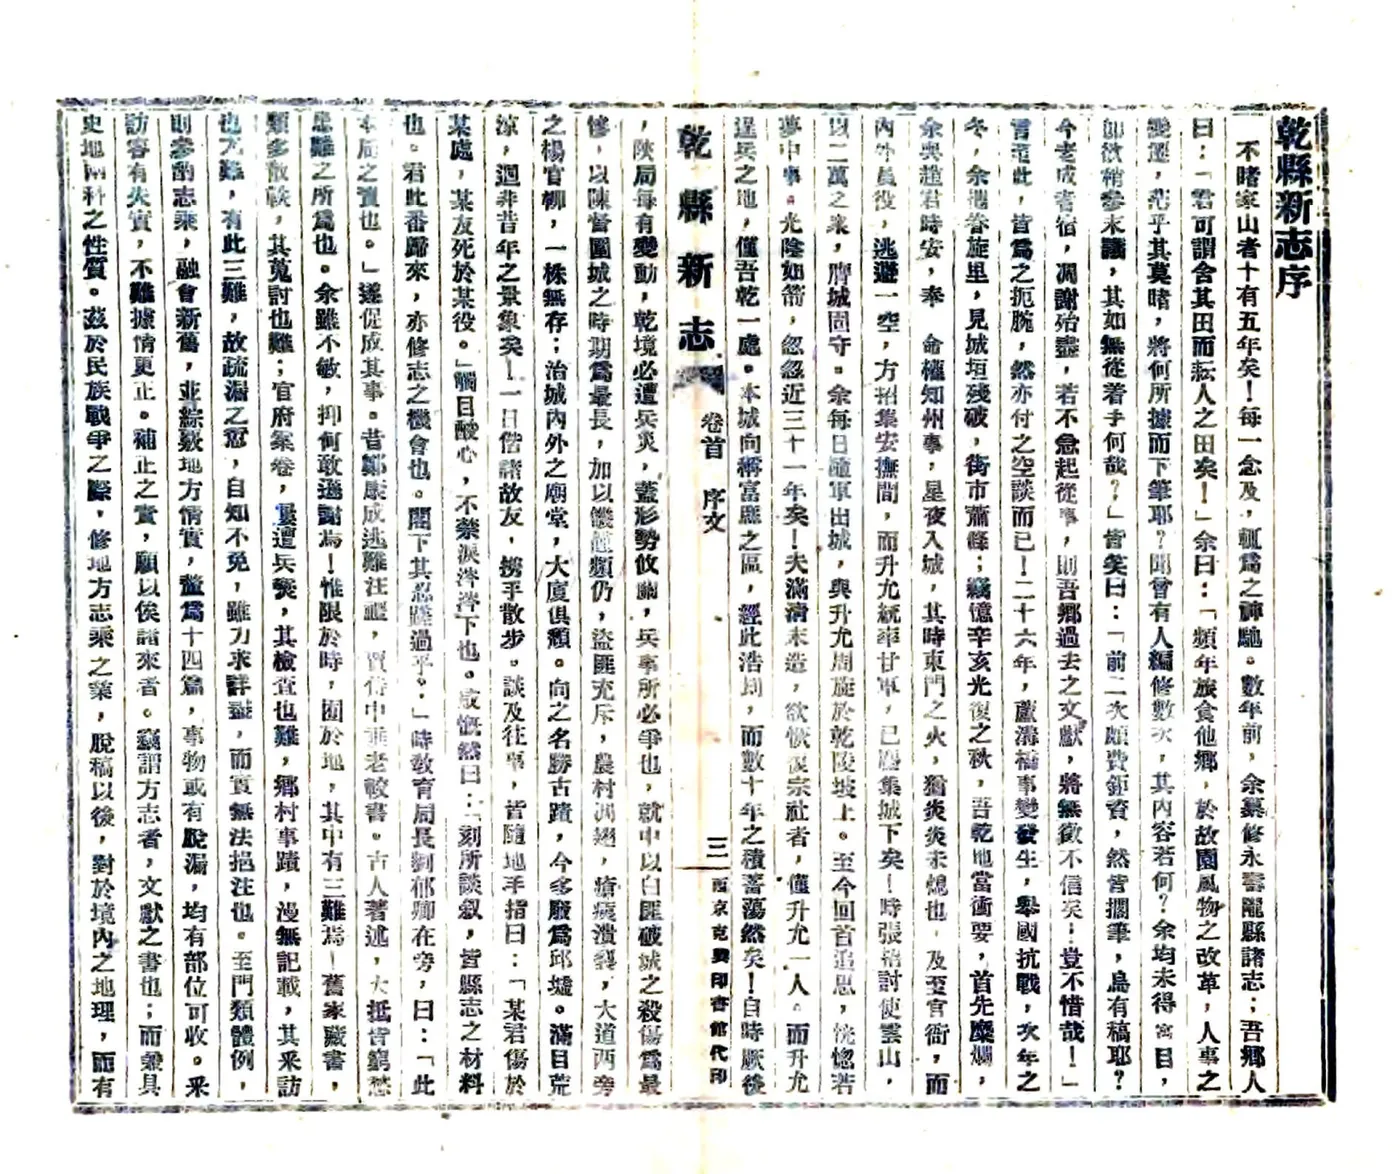 乾縣新志序
不睹家山者十有五年矣！每一念及，輒爲之神馳。數年前，余纂修永壽隴縣諸志；吾鄉人
曰：「君可謂舍其田而耘人之田矣！」余曰：「頻年旅食他鄉，於故園風物之改革，人事之
變遷，茫乎其莫睹，將何所據而下筆耶？聞曾有人編修數次，其內容若何？余均未得寓目，
卽欲稍參末議，其如無從着手何哉？」皆笑曰：「前二次頗費鉅資，然皆擱筆，烏有稿耶？
今老成耆宿，凋謝殆盡，若不急起從事，則吾鄉過去之文獻，將無徵不信矣；豈不惜哉！」
言念此，皆爲之扼腕，然亦付之空談而已！二十六年，蘆溝橋事變發生，舉國抗戰，次年之
冬，余攜眷旋里，見城垣殘破，街市蕭條；竊憶辛亥光復之秋，吾乾地當衝要，首先糜爛，
余與趙君時安，奉 命權知州事，星夜入城，其時東門之火，猶炎炎未熄也，及至官衙，而
內外員役，逃避一空，方招集安撫間，而升允統率甘軍，已麕集城下矣！時張招討使雲山，
以二萬之衆，膺城固守。余每日隨軍出城，與升允周旋於乾陵坡上。至今回首追思，恍惚若
夢中事。光陰如箭，忽忽近三十一年矣！夫滿淸末造，欲恢復宗社者，僅升允一人。而升允
逞兵之地，僅吾乾一處。本城向稱富庶之區，經此浩刦，而數十年之積蓄蕩然矣！自時厥後
乾縣新志 卷首 序文 三 西京克興印書館代印
，陝局每有變動，乾境必遭兵災，蓋形勢攸關，兵事所必爭也，就中以白匪破城之殺傷爲最
慘，以陳督圍城之時期爲最長，加以饑饉頻仍，盜匪充斥，農村凋翅，瘡痍潰裂，大道兩旁
之楊官柳，一株無存；治城內外之廟堂，大廈俱頹。向之名勝古蹟，今多廢爲邱墟。滿目荒
涼，迥非昔年之景象矣！一日偕諸故友，携手散步。談及往事，皆隨地手指曰：「某君傷於
某處，某友死於某役。」觸目酸心，不禁淚涔涔下也。咸慨然曰：「刻所談叙，皆縣志之材料
也。君此番歸來，亦修志之機會也。閣下其忍蹉過乎。」時敎育局長劉郁卿在旁，曰：「此
本局之責也。」遂促成其事。昔鄭康成逃難注禮，賈岱中乘老較書。古人著述，大抵皆窮愁
患難之所爲也。余雖不敏，抑何敢遜謝焉！惟限於時，囿於地，其中有三難焉—舊家藏書，
類多散軼，其蒐討也難；官府案卷，屢遭兵燹，其檢査也難，鄉村事蹟，漫無記載，其釆訪
也尤難，有此三難，故疏漏之愆，自知不免，雖力求詳盡，而實無法挹注也。至門類體例，
則參酌志乘，融會新舊，並綜覈地方情實，釐爲十四篇，事物或有脫漏，均有部位可收。釆
訪容有失實，不難據情更正。補正之責，願以俟諸來者。竊謂方志者，文獻之書也；而兼具
史地兩科之性質。茲於民族戰爭之際，修地方志乘之業，脫稿以後，對於境內之地理，而有